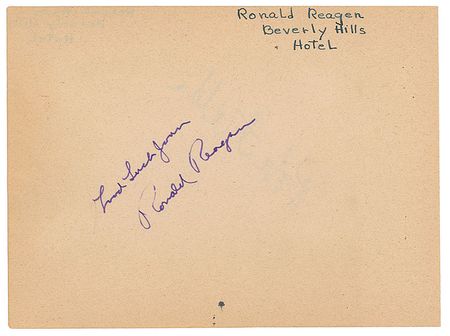 Ronald Reagen
Beverly Hills
Hotel
Good Luck Joan
Ronald Reagan